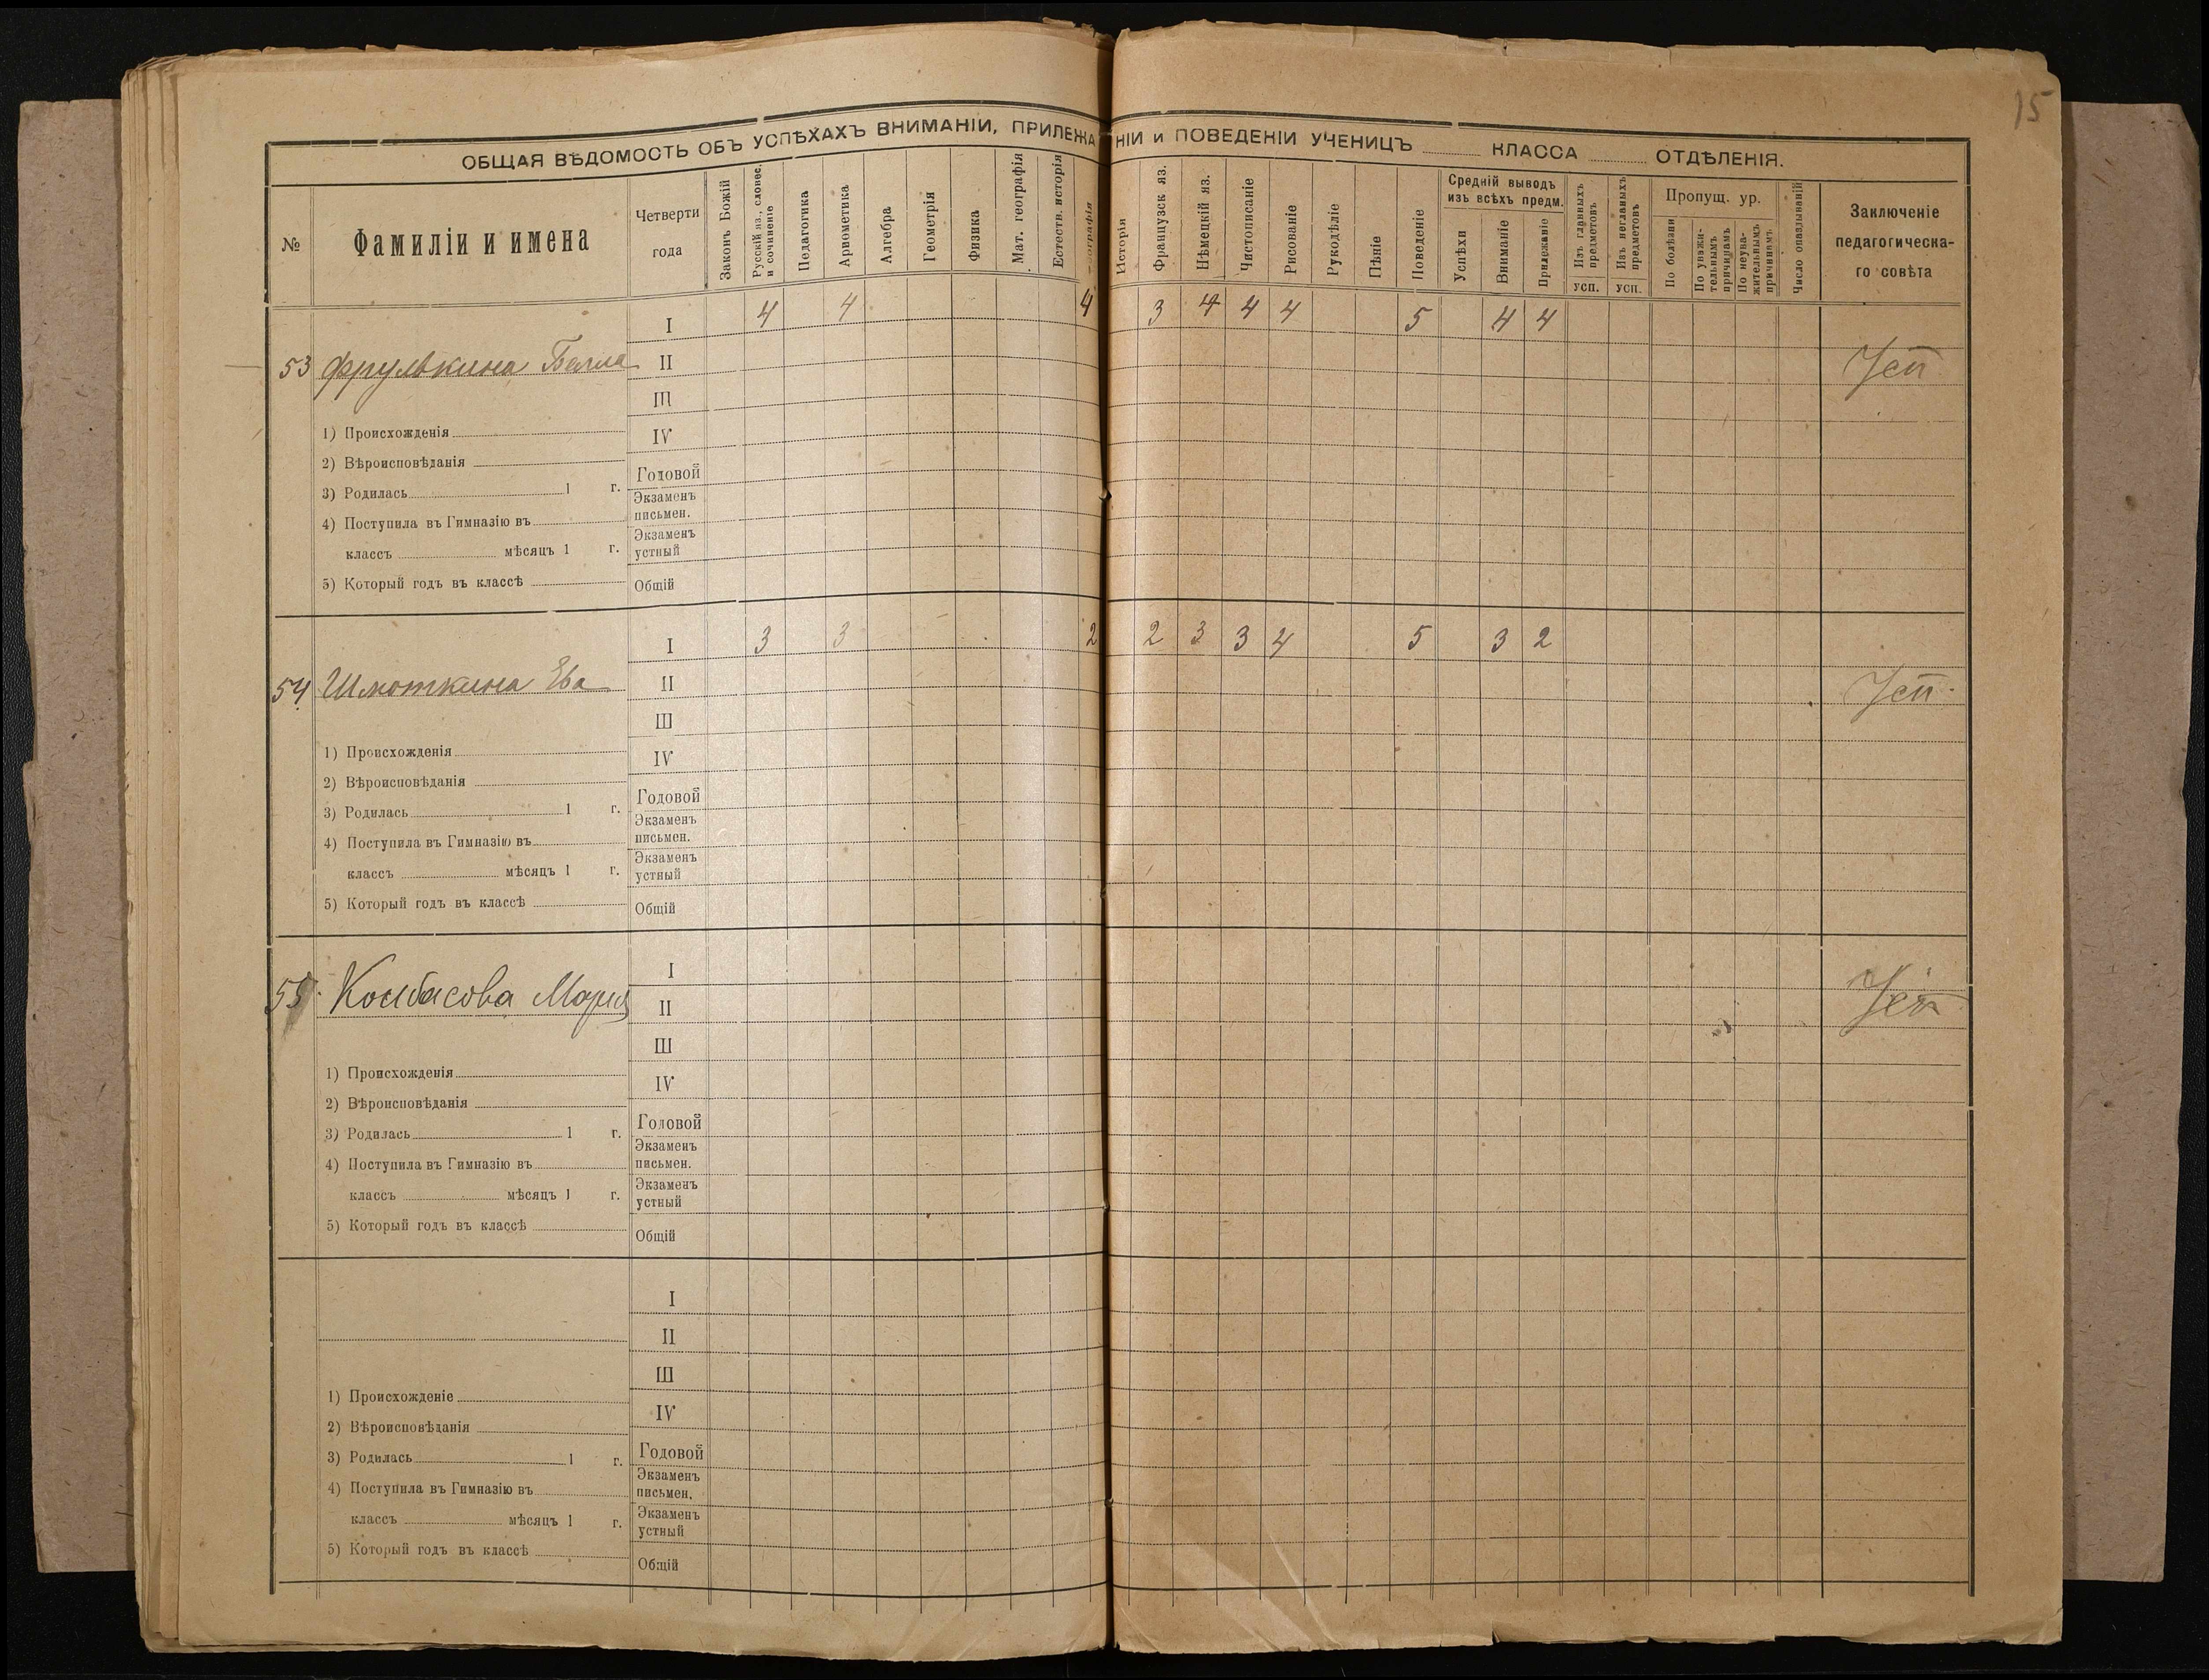 15
ОБЩАЯ ВѢДОМОСТЬ ОБЪ УСПѢХАХЪ ВНИМАНІИ, ПРИЛЕЖАНІИ и ПОВЕДЕНІИ УЧЕНИЦЪ КЛАССА ОТДѢЛЕНІЯ.
№
Фамиліи и имена
Четверти года
Законъ Божій
Русскій яз., словес. и сочиненіе
Педагогика
Арвометика
Алгебра
Геометрія
Физика
Мат. географія
Естеств. исторія
Географія
Исторія
Французск яз.
Нѣмецкій яз.
Чистописаніе
Рисованіе
Рукодѣліе
Пѣніе
Поведеніе
Средній выводъ изъ всѣхъ предм.
Успѣхи
Вниманіе
Прилежаніе
Изъ главныхъ предметовъ
усп.
Изъ неглавныхъ предметовъ
усп.
Пропущ. ур.
По болѣзни
По уважительнымъ причинамъ
По неуважительнымъ причинамъ
Число опаздываній
Заключеніе педагогическаго совѣта
I 4 4 4 3 4 4 4 5 4 4
53 Фрумкина Белла II Усп
III
1) Происхожденія IV
2) Вѣроисповѣданія
3) Родилась 1 г. Годовой
4) Поступила въ Гимназію въ Экзаменъ письмен.
классъ мѣсяцъ 1 г. Экзаменъ устный
5) Который годъ въ классѣ Общій
I 3 3 2 2 3 3 4 5 3 2
54 Шмоткина Ева II Усп.
III
1) Происхожденія IV
2) Вѣроисповѣданія
3) Родилась 1 г. Годовой
4) Поступила въ Гимназію въ Экзаменъ письмен.
классъ мѣсяцъ 1 г. Экзаменъ устный
5) Который годъ въ классѣ Общій
I
55. Колбасова Мария II Усп
III
1) Происхожденія IV
2) Вѣроисповѣданія
3) Родилась 1 г. Годовой
4) Поступила въ Гимназію въ Экзаменъ письмен.
классъ мѣсяцъ 1 г. Экзаменъ устный
5) Который годъ въ классѣ Общій
I
II
III
1) Происхожденіе IV
2) Вѣроисповѣданія
3) Родилась 1 г. Годовой
4) Поступила въ Гимназію въ Экзаменъ письмен.
классъ мѣсяцъ 1 г. Экзаменъ устный
5) Который годъ въ классѣ Общій